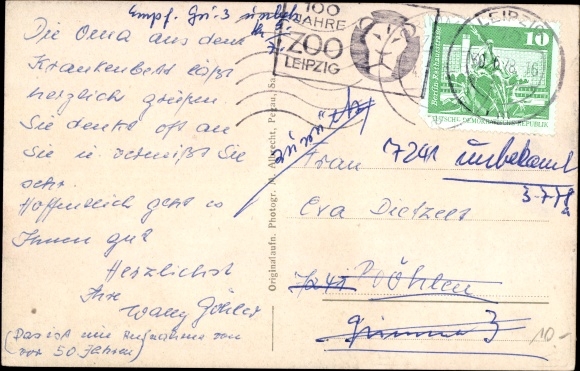 Empf.
100
JAHRE
ZOO
LEIPZIG
LEIPZIG
10
Berlin, Rathausstraße
DEUTSCHE DEMOKRATISCHE REPUBLIK
Die Oma aus dem
Krankenbett läßt
herzlich grüßen
Sie denkt oft an
Sie u. vermißt Sie
sehr.
Hoffentlich geht es
Ihnen gut
Herzlichst
Ihre
Wally Göhler
(Das ist eine Aufnahme von
vor 50 Jahren)
Originalaufn. Photogr. M. Albrecht, Pegau, Sa.
Frau
7241 unbekannt
Eva Dietzel
7241 Böhlen
Grimma 3
10-